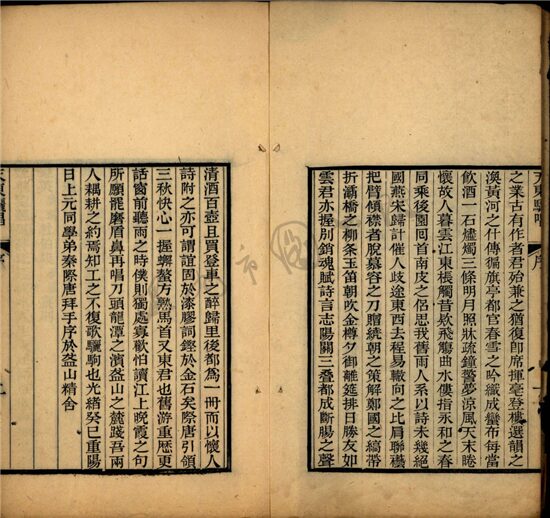 天東驪唱 序
之業古有作者君始兼之猶復卽席揮毫登樓選韻之
渙黃河之什傳徧旗亭都官春雪之吟織成蠻布每當
飮酒一石燼燭三條明月照牀疏鐘警夢涼風天末睠
懷故人暮雲江東棖觸昔歎飛觴曲水僂指永和之春
同乘後園囘首南皮之侶思我舊雨人系以詩未幾絕
國燕宋歸計催人歧途東西去程易轍向之比肩聯襼
把臂傾襟者脫慕容之刀贈繞朝之策解鄭國之縞帶
折灞橋之柳條玉笛朝吹金樽夕御離筵排日勝友如
雲君亦握別銷魂賦詩言志陽關三疊都成斷腸之聲
清酒百壺且買登車之醉歸里後都為一冊而以懷人
詩附之亦可謂誼固於漆膠詞鏗於金石矣際唐引領
三秋快心一握蠏螯方熟馬首又東君也舊游重歷更
話窗前聽雨之時僕則獨處寡歡怕讀江上晚霞之句
所願擢磨盾鼻再唱刀頭龍潭之濱盋山之麓踐吾兩
人耦耕之約焉知工之不復歌驪駒也光緒癸巳重陽
日上元同學弟秦際唐拜手序於盋山精舍
天東驪唱 序